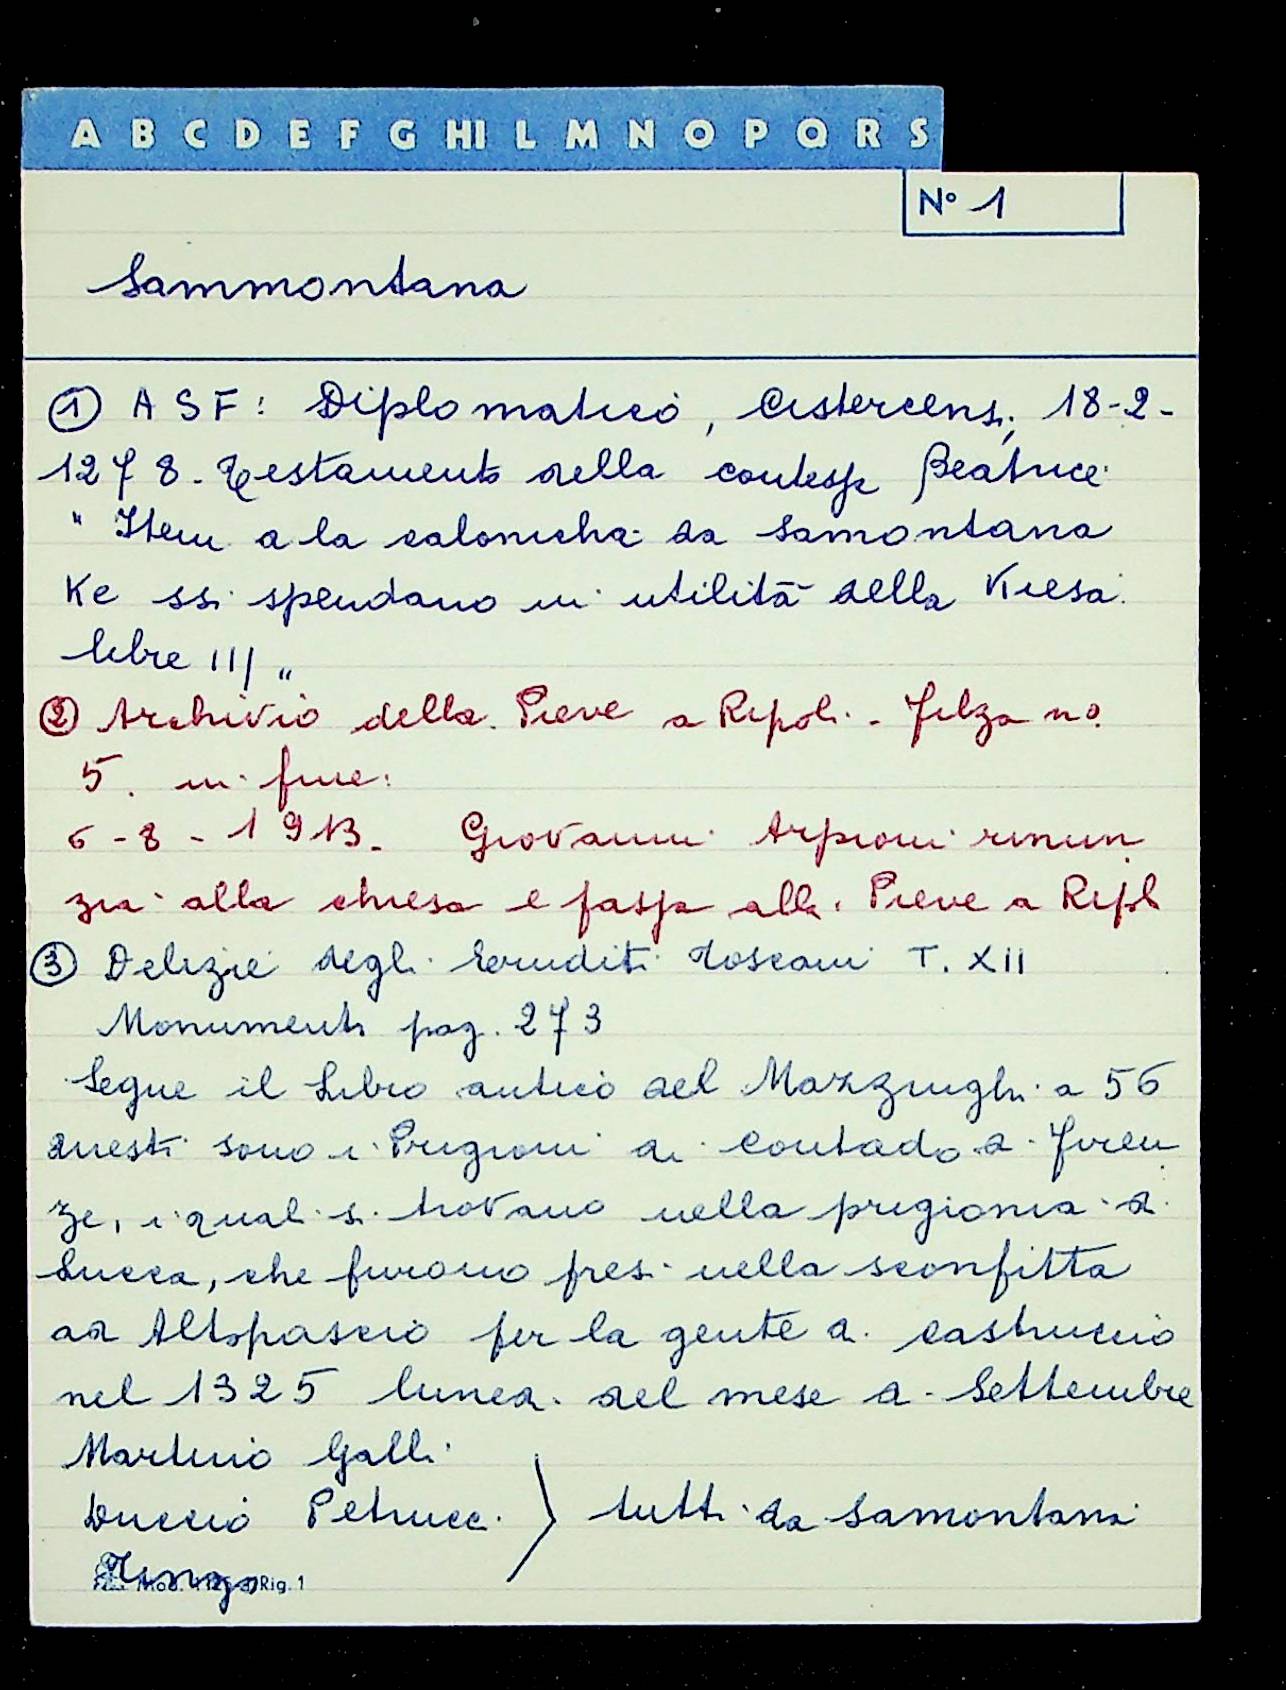 A B C D E F G HI L M N O P Q R S
N° 1
Sammontana
① ASF: Diplomatico, Cistercensi, 18-2-
1278. Testamento della contessa Beatrice
"Item a la calonicha da Samontana
Ke ssi spendano in utilità della Kiesa
libre III"
② Archivio della Pieve a Ripoli. Filza no.
5. in fine:
6-8-1913. Giovanni Arpioni rinun
zia alla chiesa e passa alla Pieve a Ripoli
③ Delizie degli Eruditi Toscani T. XII
Monumenti pag. 273
Segue il Libro antico del Mazzinghi a 56
Questi sono i Prigioni di contado di Firen
ze, i quali si trovano nella prigionia di
Lucca, che furono presi nella sconfitta
ad Altopascio per la gente di Castruccio
nel 1325 lunedi del mese di Settembre
Martino Galli
Duccio Petrucci } tutti da Samontana
Rig. 1